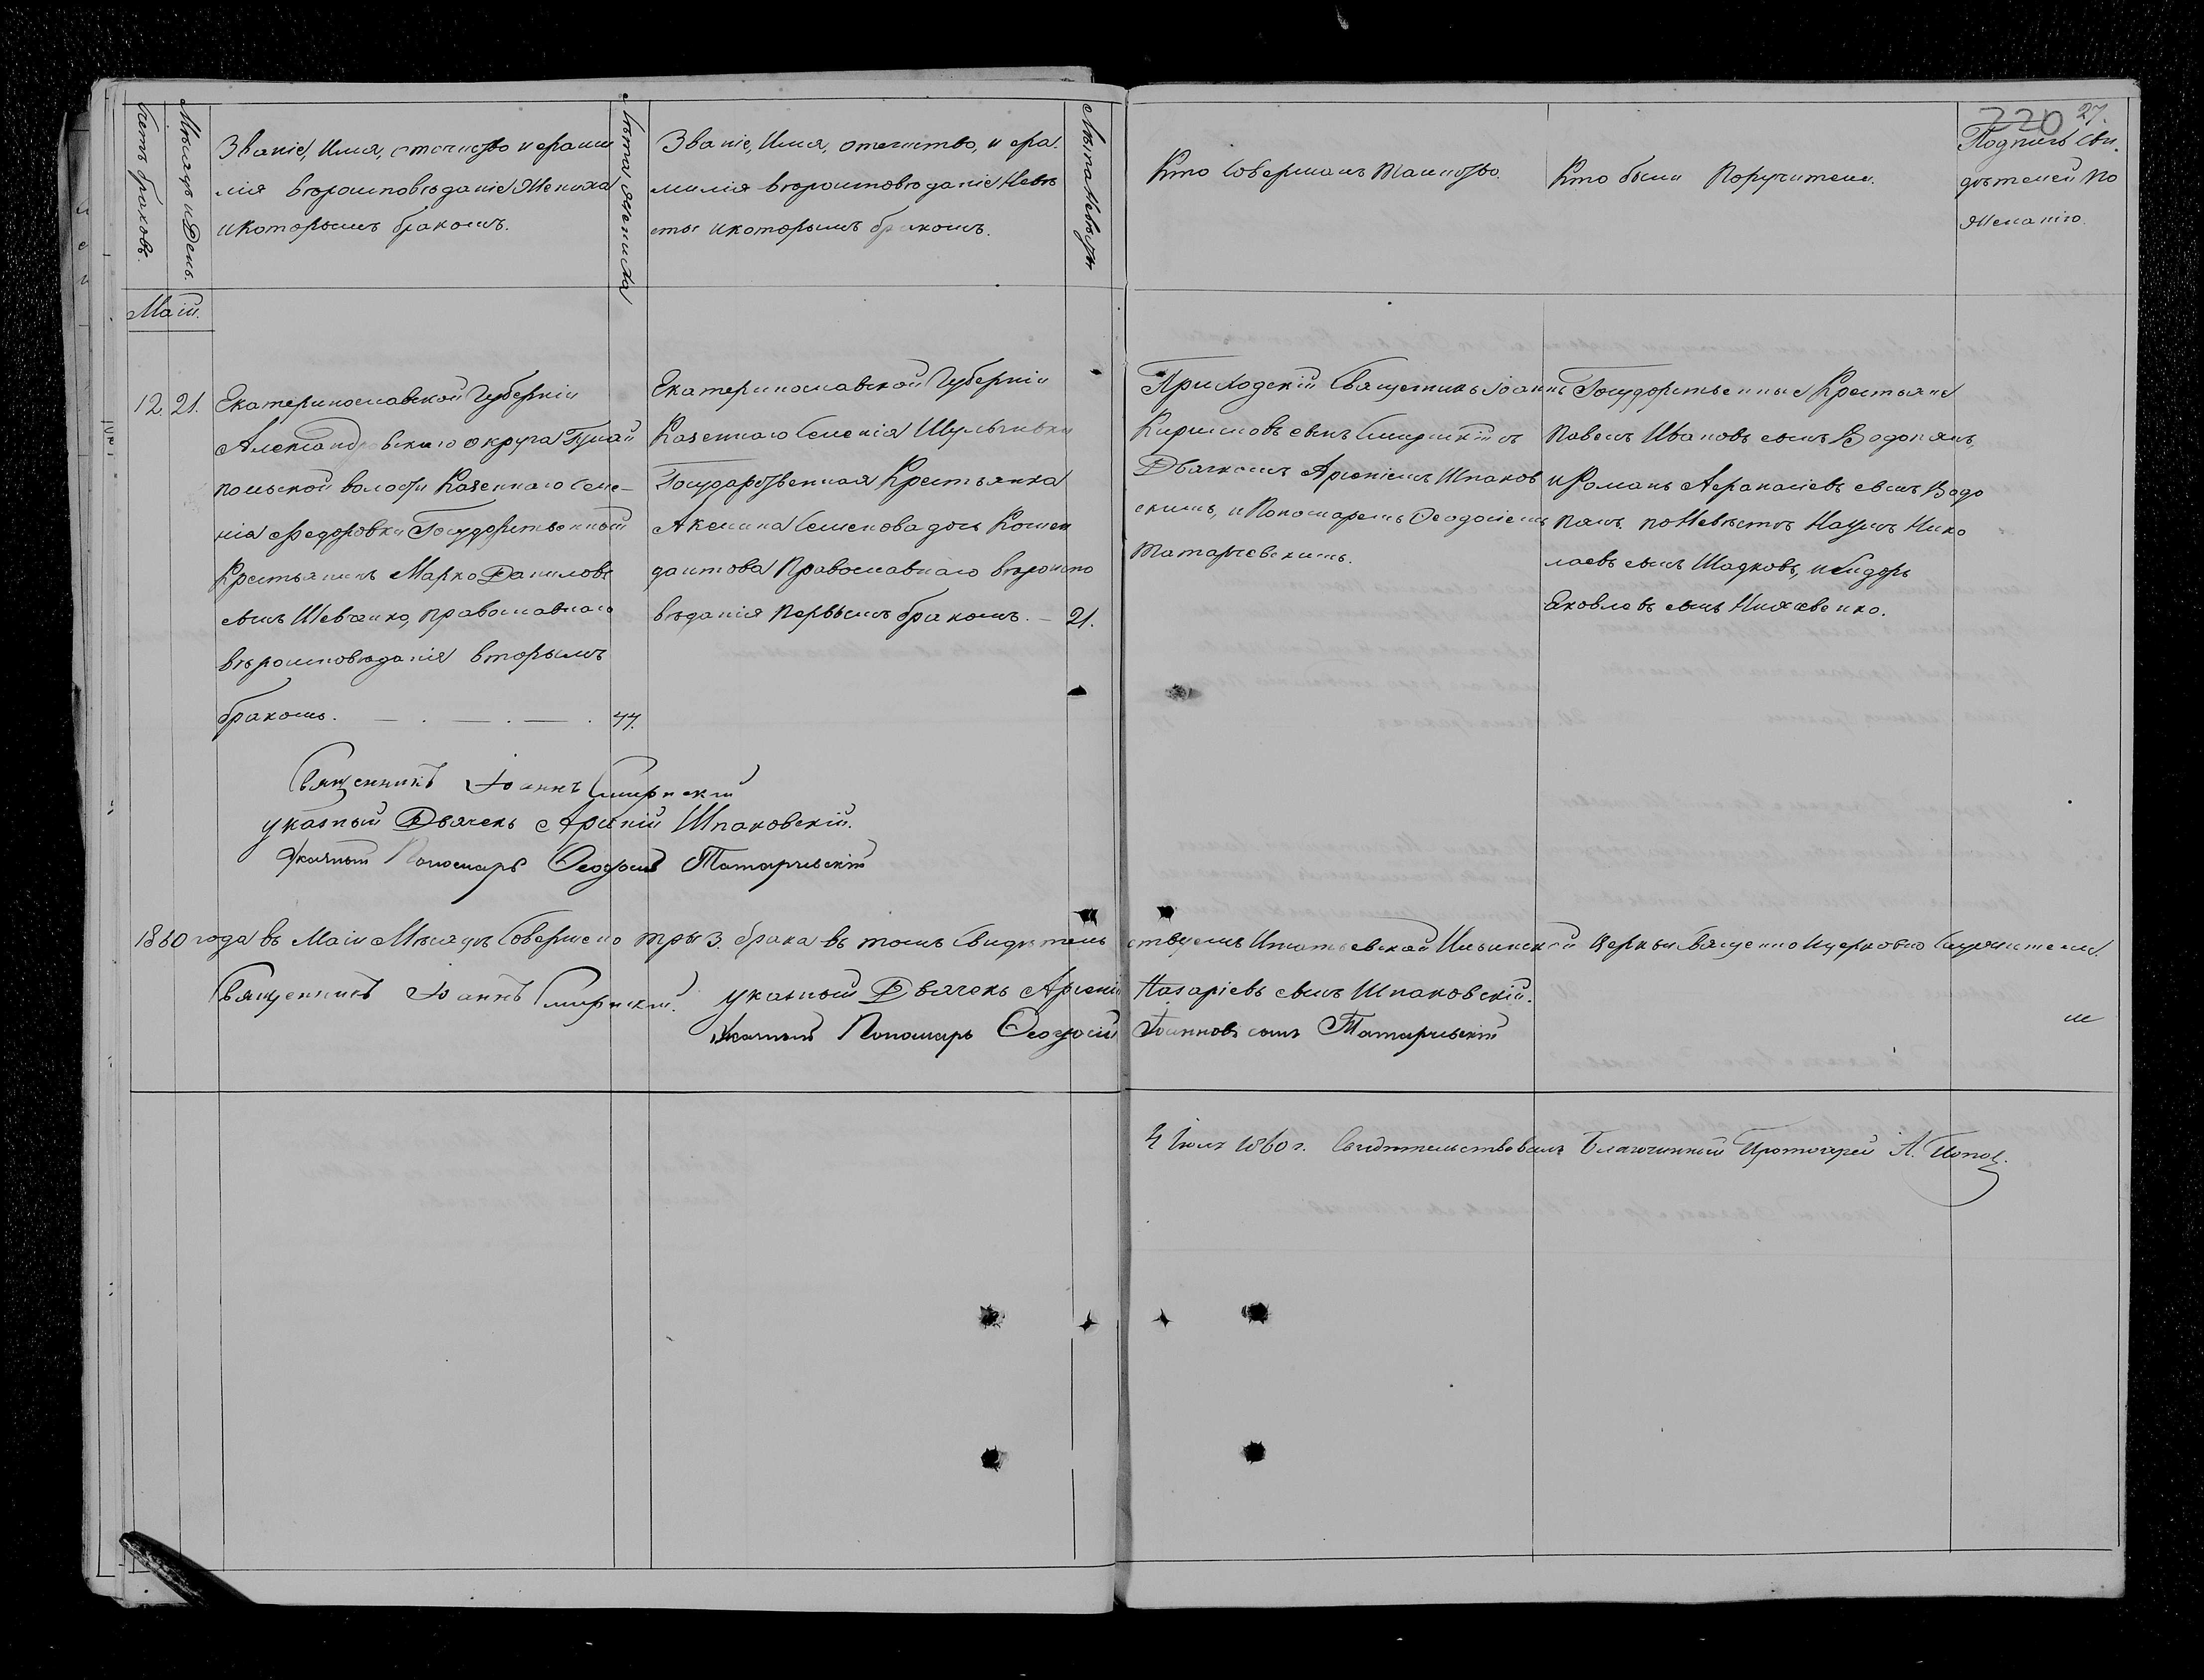 220 27.
Счетъ браковъ.
Мѣсяцъ и День.
Званіе, Имя, отечество и фами
лія вѣроисповѣданіе Жениха
и которымъ бракомъ.
Лѣта жениха
Званіе, Имя, отечество, и фа.
милія вѣроисповѣданіе Невѣ
сты и которымъ бракомъ.
Лѣта Невѣсты
Кто совершалъ Таинство.
Кто были Поручители.
Подпись сви.
дѣтелей по
желанію.
Маій.
12. 21.
Екатеринославской Губерніи
Александровскаго округа Гуляй
польской волости Казеннаго Селе-
нія Федоровки Государственный
Крестьянинъ Марко Даниловъ
сынъ Шевченко, православнаго
вѣроисповѣданія вторымъ
бракомъ. 44.
Екатеринославской Губерніи
Казеннаго Селенія Шульгивки
Государственная Крестьянка
Акелина Семенова дочь Комен
дантова Православнаго вѣроиспо
вѣданія первымъ бракомъ. – 21.
Приходскій Священникъ Іоаннъ
Кириловъ сынъ Смирнскій съ
Дьячкомъ Арсеніемъ Шпаков
скимъ, и Пономаремъ Феодосіемъ
Татарчевскимъ.
Государственные Крестьяне
Павелъ Ивановъ сынъ Водопянъ,
и Романъ Афанасіевъ сынъ Водо
пянъ. по Невѣстѣ Наумъ Нико
лаевъ сынъ Шадковъ, и Сидоръ
Яковлевъ сынъ
Священникъ Іоаннъ Смирнскій
указный Дьячекъ Арсеній Шпаковскій.
Указный Пономарь Феодосій Татарчевскій
1860 года въ Маіи Мѣсяцѣ Совершено тры 3. брака въ томъ Свидѣтельствуемъ Игнатьевской Ильинской Церкви Священно и церковно Служители.
Священникъ Іоаннъ Смирнскій. указный Дьячекъ Арсеній Назаріевъ сынъ Шпаковскій.
Указный Пономарь Феодосій Іоанновъ сынъ Татарчевскій
4 Іюля 1860 г. Свидѣтельствовалъ Благочинный Протоіерей А. Попов.